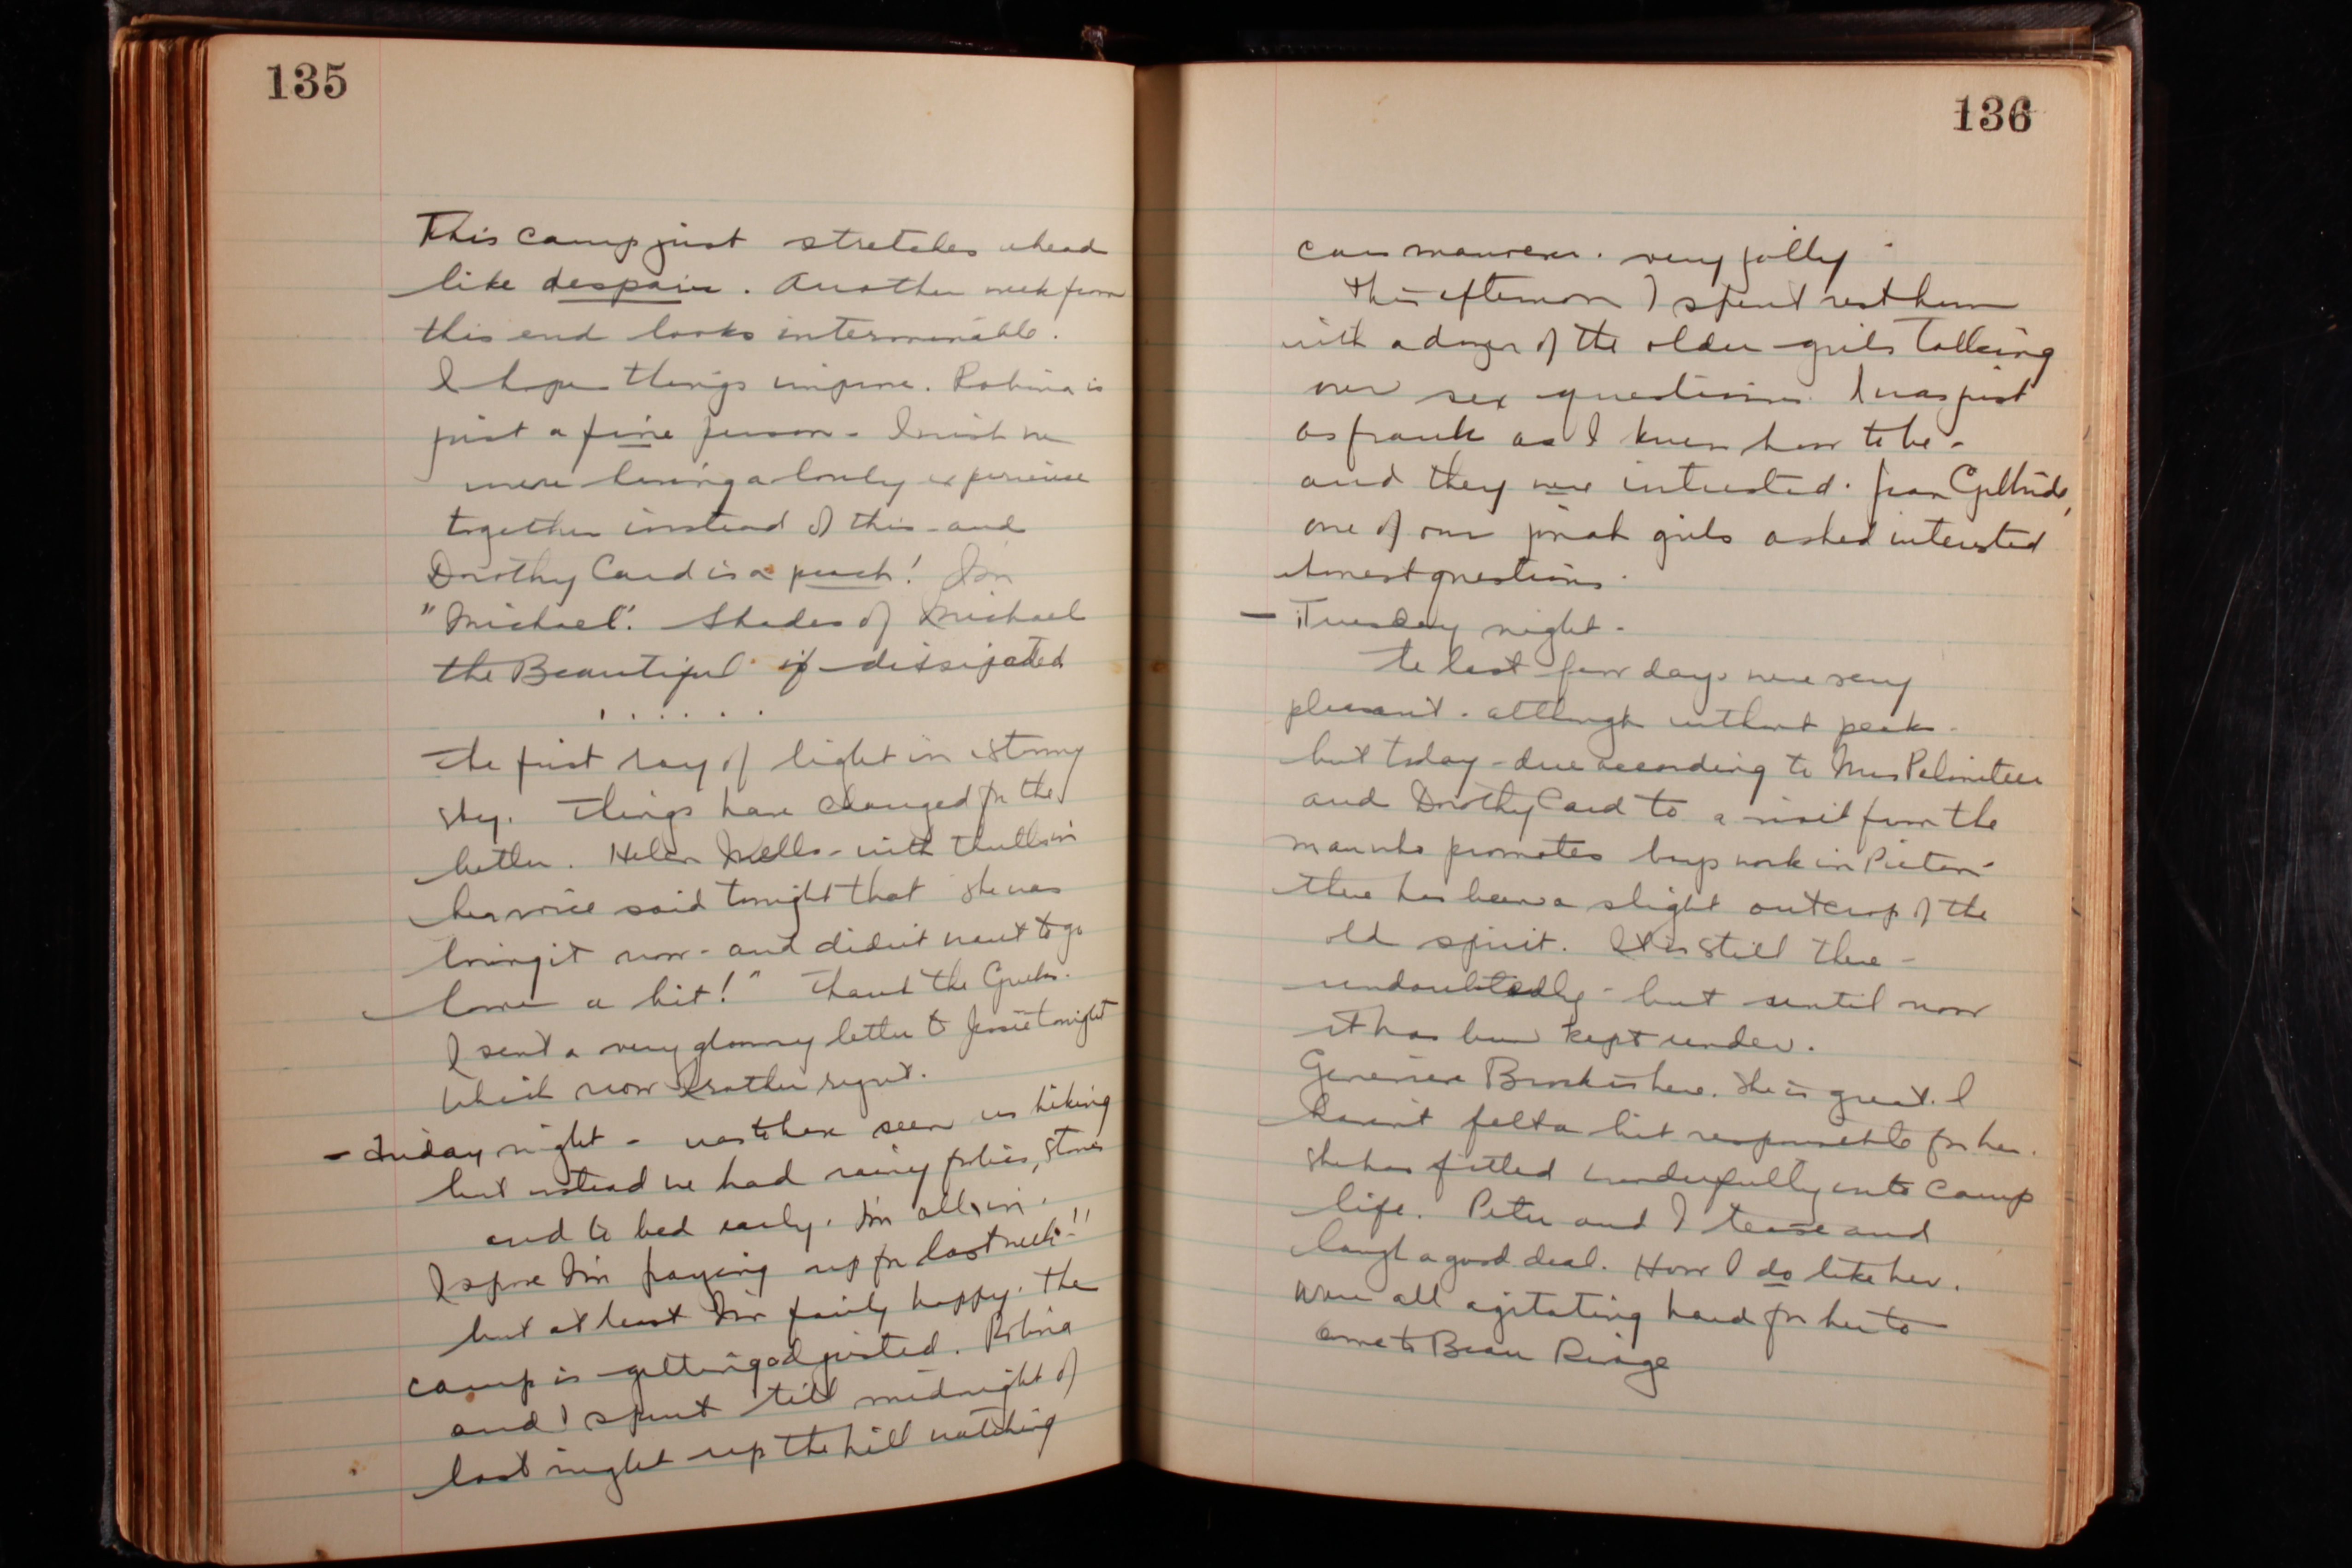 135
This camp just stretches ahead
like despair. Another week from
this end looks interminable.
I hope things improve. Robina is
just a fine person - I wish we
were having a lovely experience
together instead of this - and
Dorothy Card is a peach! I'm
"Michael". Shades of Michael
the Beautiful if dissipated
. . . . . .
The first ray of light in a stormy
sky. Things have changed for the
better. Helen Wells - with thrills in
her voice said tonight that "she was
loving it now - and didn't want to go
home a bit!" Thank the Greeks.
I sent a very gloomy letter to Jessie tonight
which now I rather regret.
- Friday night - was to have seen us hiking
but instead we had rainy frolics, stories
and to bed early. I'm all in.
I spose I'm paying up for last week!!
but at least I'm fairly happy. The
camp is getting adjusted. Robina
and I spent till midnight of
last night up the hill watching
136
very jolly
This afternoon I spent rest hour
with a dozen of the older girls talking
over sex questions. I was just
as frank as I knew how to be -
and they were interested. Jean
one of our girls asked interested
honest questions.
- Tuesday night.
The last few days were very
pleasant - although without peaks -
but today - due according to Mrs
and Dorothy Card to a visit from the
man who promotes boys work in Picton -
there has been a slight outcrop of the
old spirit. It is still there -
undoubtedly - but until now
it has been kept under.
Genevieve is here. She is great. I
haven't felt a bit responsible for her.
She has fitted wonderfully into camp
life. Peter and I tease and
laugh a good deal. How I do like her.
We're all agitating hard for her to
come to Beau Rivage